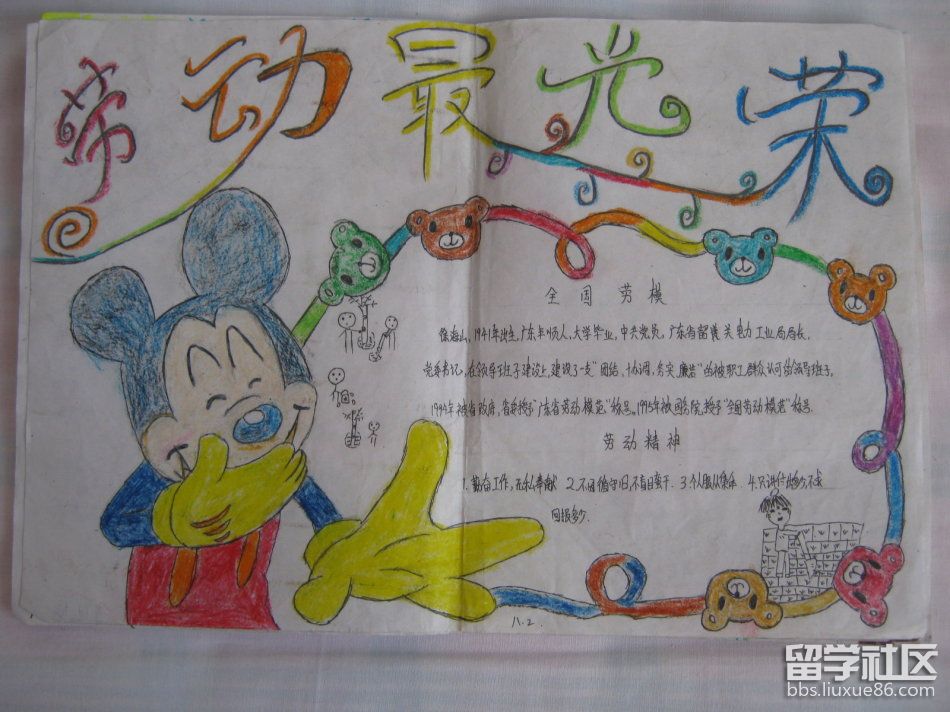 劳动最光荣
全国劳模
徐海山,1941年出生,广东丰顺人,大学毕业,中共党员,广东省韶关电力工业局局长,
党委书记,在领导班子建设上,建设了一支"团结、协调、务实、廉洁"的被职工群众认可的领导班子.
1994年被省政府,省委授予"广东省劳动模范"称号.1995年被国务院授予"全国劳动模范"称号.
劳动精神
1.勤奋工作,无私奉献 2.不因循守旧,不盲目蛮干. 3.个人服从集体 4.只讲付出多少,不求
回报多少.
八.2.
留学社区
bbs.liuxue86.com